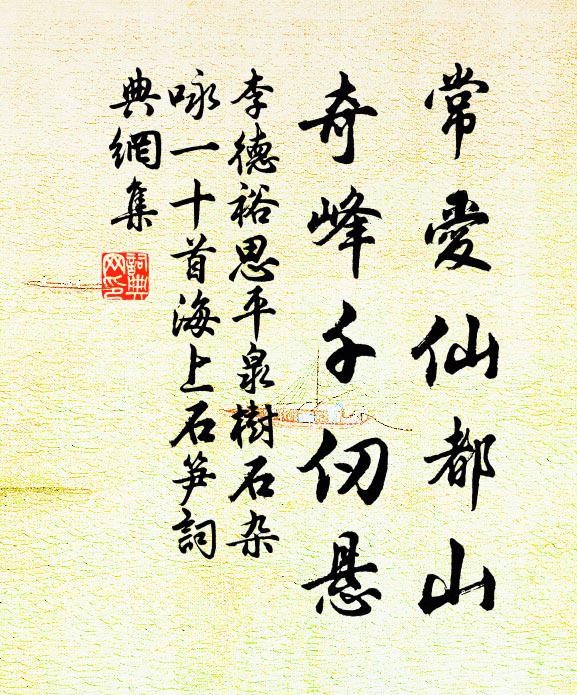 常愛仙都山
奇峰千仞懸
李德裕思平泉樹石杂
咏一十首海上石笋詞
典網集
詞典
网印